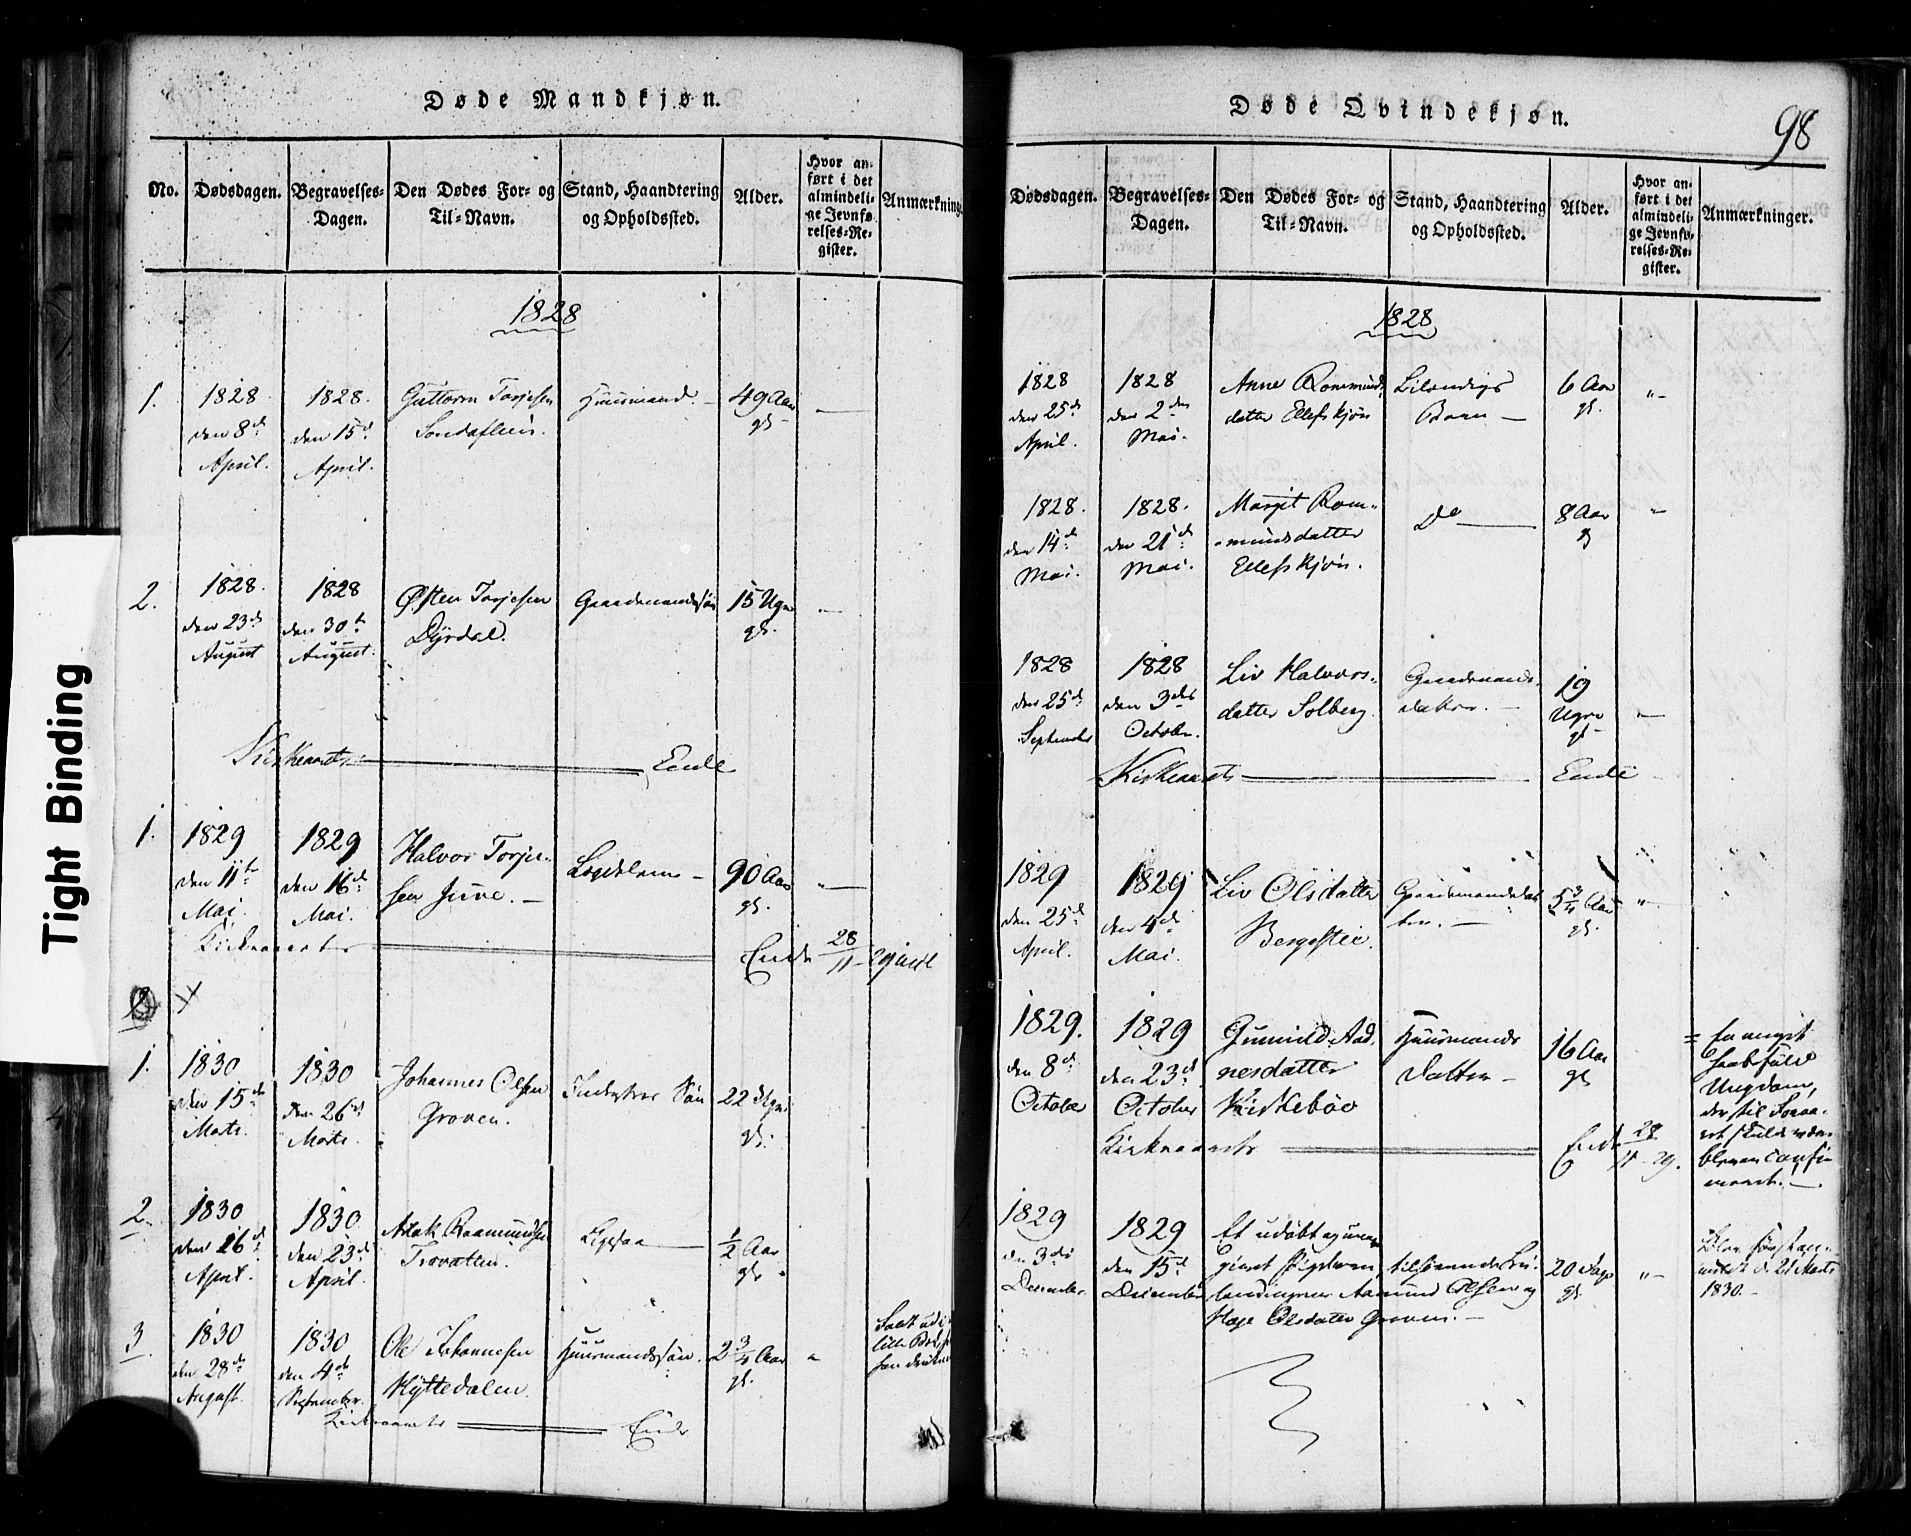 Tight Binding
Døde Mandkjøn.
No.
Dødsdagen.
Begravelses-
Dagen.
Den Dødes For- og
Til-Navn.
Stand, Haandtering
og Opholdssted.
Alder.
Hvor an-
ført i det
almindeli-
ge Jevnfø-
relses-Re-
gister.
Anmærkninge
1828
1.
1828.
den 8d
April.
1828.
den 15d
April.
Guttorm Torjesen
Huusmand. -
49 Aar
gl. -
2.
1828.
den 23de
August
1828
den 30te
August.
Østen Torjesen
Dyrdal.
Gaardmandssøn
15 Uger
gl.
Kirkeaarets Ende
1.
1829
den 11te
Mai.
1829
den 16de
Mai.
Halvor Torje-
sen Juve. -
90 Aar
gl.
Kirkeaarets Ende 28/11 - 29
1.
1830
den 15de
Marts.
1830
den 26d
Marts.
Johannes Olsen
Groven.
Inderstes Søn
22 Uger
gl.
2.
1830
den 16d
April.
1830
den 23d
April.
Aslak Raamundsen
1/2 Aar
gl.
3.
1830
den 28de
August.
1830
den 4de
September.
Ole Johannesen
Hyttedalen.
Huusmandssøn.
2 3/4 Aar
gl.
Kirkeaarets Ende
Døde Qvindekjøn.
98
Dødsdagen.
Begravelses-
Dagen.
Den Dødes For- og
Til-Navn.
Stand, Haandtering
og Opholdssted.
Alder.
Hvor an-
ført i det
almindeli-
ge Jevnfø-
relses-Re-
gister.
Anmærkninger.
1828
1828
den 25de
April.
1828
den 2den
Mai.
Anne Rommunds
datter Ellefskjøn
Barn -
6 Aar
gl.
1828.
den 14de
Mai.
1828.
den 21de
Mai.
Margit Rom-
mundsdatter
Ellefskjøn.
Do
8 Aar
gl
1828
den 25de
September
1828
den 3die
October.
Liv Halvors-
datter Solberg.
Gaardmands-
datter. -
19
Uger
gl -
Kirkeaarets Ende
1829
den 25de
April.
1829
den 4de
Mai.
Liv Olsdatter
Gaardmandsdat
ter. -
5 3/4 Aar
gl.
1829.
den 8de
October
1829
den 23de
October
Gunnild Aad-
nesdatter
Kirkebøe
Huusmands
Datter -
16 Aar
gl
haabfuld
Ungdom,
Kirkeaarets Ende 28/11 - 29.
1829
den 3die
December.
1829
den 15de
December
Et udøbt og unav-
givet Pigebarn, tilhørende
Aamund Olsen og
Hæge Olsdatter Groven. -
20 Dage
gl.
Blev først an-
meldt d. 21 Marts
1830. -